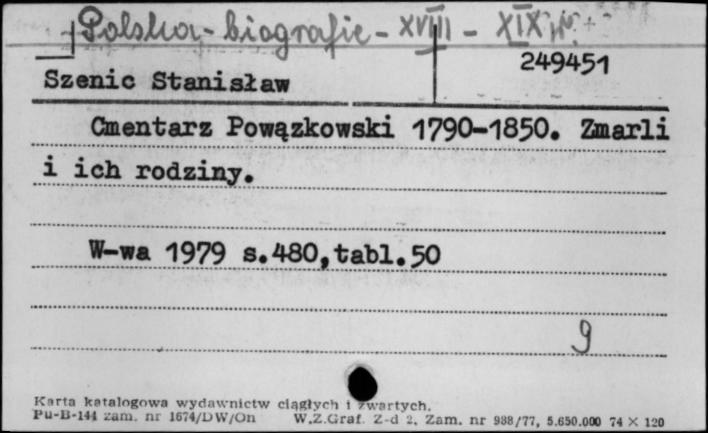 Polska - biografie - XVIII - XIX w.
249451
Szenic Stanisław
Cmentarz Powązkowski 1790-1850. Zmarli
i ich rodziny.
W-wa 1979 s.480,tabl.50
9
Karta katalogowa wydawnictw ciągłych i zwartych.
Pu-B-144 zam. nr 1674/DW/On W.Z.Graf. Z-d 2. Zam. nr 988/77, 5.650.000 74 × 120